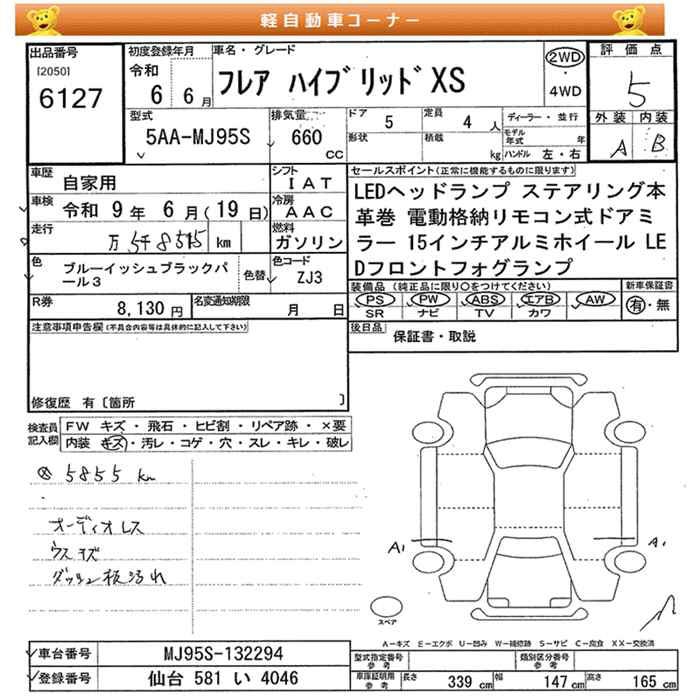 軽自動車コーナー
出品番号
[2050]
6127
初度登録年月
令和
6 6月
車名・グレード
フレア ハイブリッド XS
2WD
・
4WD
評価点
5
外装 内装
A B
型式
5AA-MJ95S
排気量
660
CC
ドア
5
定員
4 人
形状
積載
kg
ディーラー・並行
モデル年式 年
ハンドル 左・右
車歴
自家用
シフト
IAT
車検
令和 9年 6月(19日)
冷房
AAC
走行
万 km
燃料
ガソリン
色
ブルーイッシュブラックパール3
色替
色コード
ZJ3
R券
8,130円
名変通知期限
月 日
セールスポイント(正常に機能するものに限ります)
LEDヘッドランプ ステアリング本
革巻 電動格納リモコン式ドアミ
ラー 15インチアルミホイール LE
Dフロントフォグランプ
装備品 (純正品に限り○をつけてください)
PS PW ABS エアB AW
SR ナビ TV カワ
新車保証書
有・無
後日品
保証書・取説
注意事項申告欄(不具合内容等は具体的に記入して下さい)
修復歴 有〔箇所 〕
検査員記入欄
FW キズ・飛石・ヒビ割・リペア跡・×要
内装 キズ・汚レ・コゲ・穴・スレ・キレ・破レ
5855 km
オーディオレス
ウスキズ
ダッシュ板汚れ
A1
A1
スペア
A-キズ E-エクボ U-凹み W-補修跡 S-サビ C-腐食 XX-交換済
車台番号
MJ95S-132294
登録番号
仙台 581 い 4046
型式指定番号
参考
類別区分番号
参考
車庫証明用
参考
長さ 339 cm
幅 147 cm
高さ 165 cm